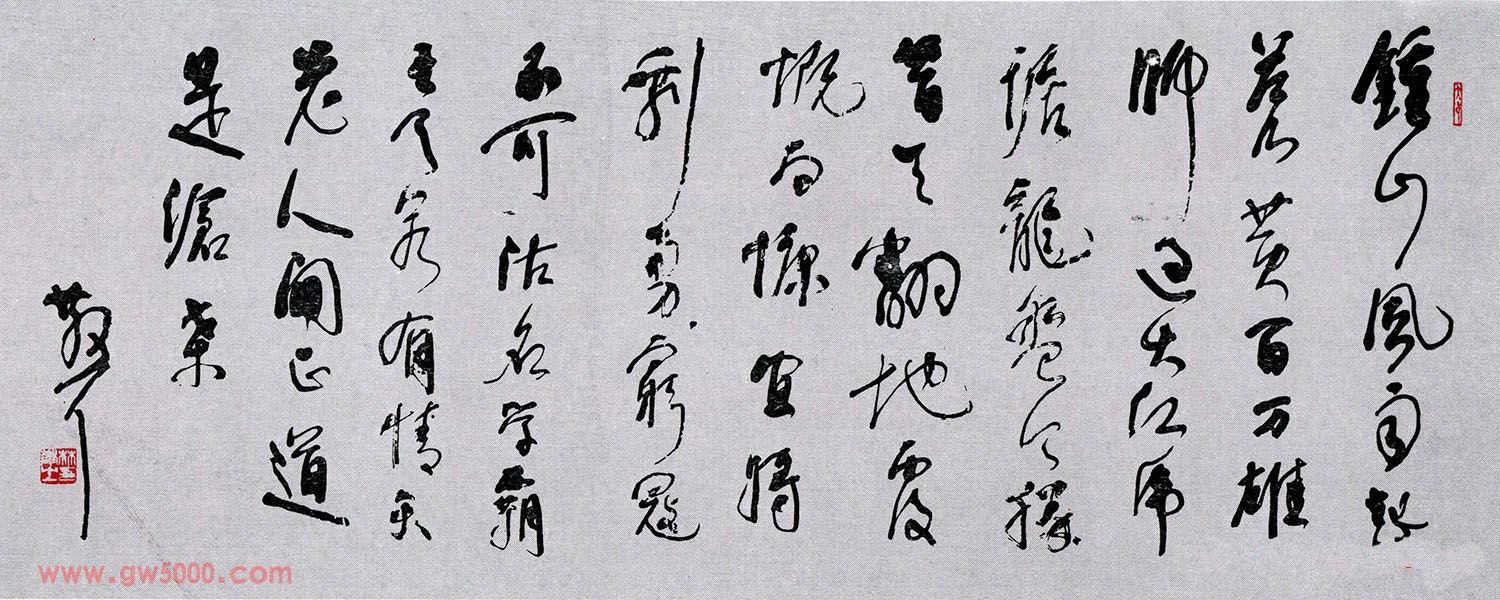 鍾山風雨起
蒼黄百万雄
師过大江虎
踞龍盤今勝
昔天翻地覆
慨而慷宜將
剩勇窮寇
不可沽名学霸
王天若有情天
老人間正道
是滄桑
散耳
www.gw5000.com